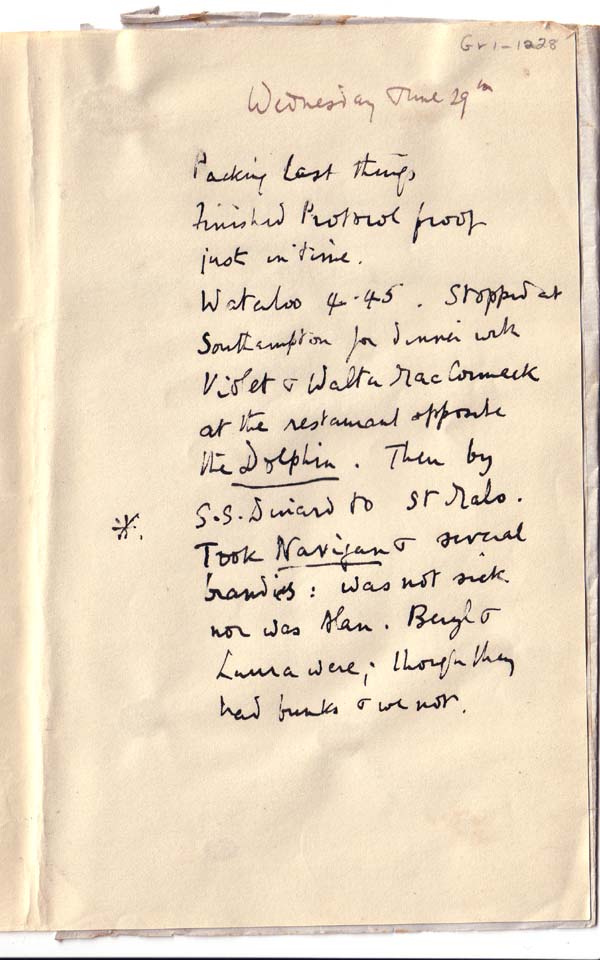 Gr1-1228
Wednesday June 29th
Packing last things
Finished Protocol proof
just in time.
Waterloo 4.45. Stopped at
Southampton for dinner with
Violet & Walter MacCormack
at the restaurant opposite
the Dolphin. Then by
S.S. Dinard to St Malo.
*. Took Navigan & several
brandies: was not sick
nor was Alan. Beryl &
Laura were; though they
had bunks & we not.